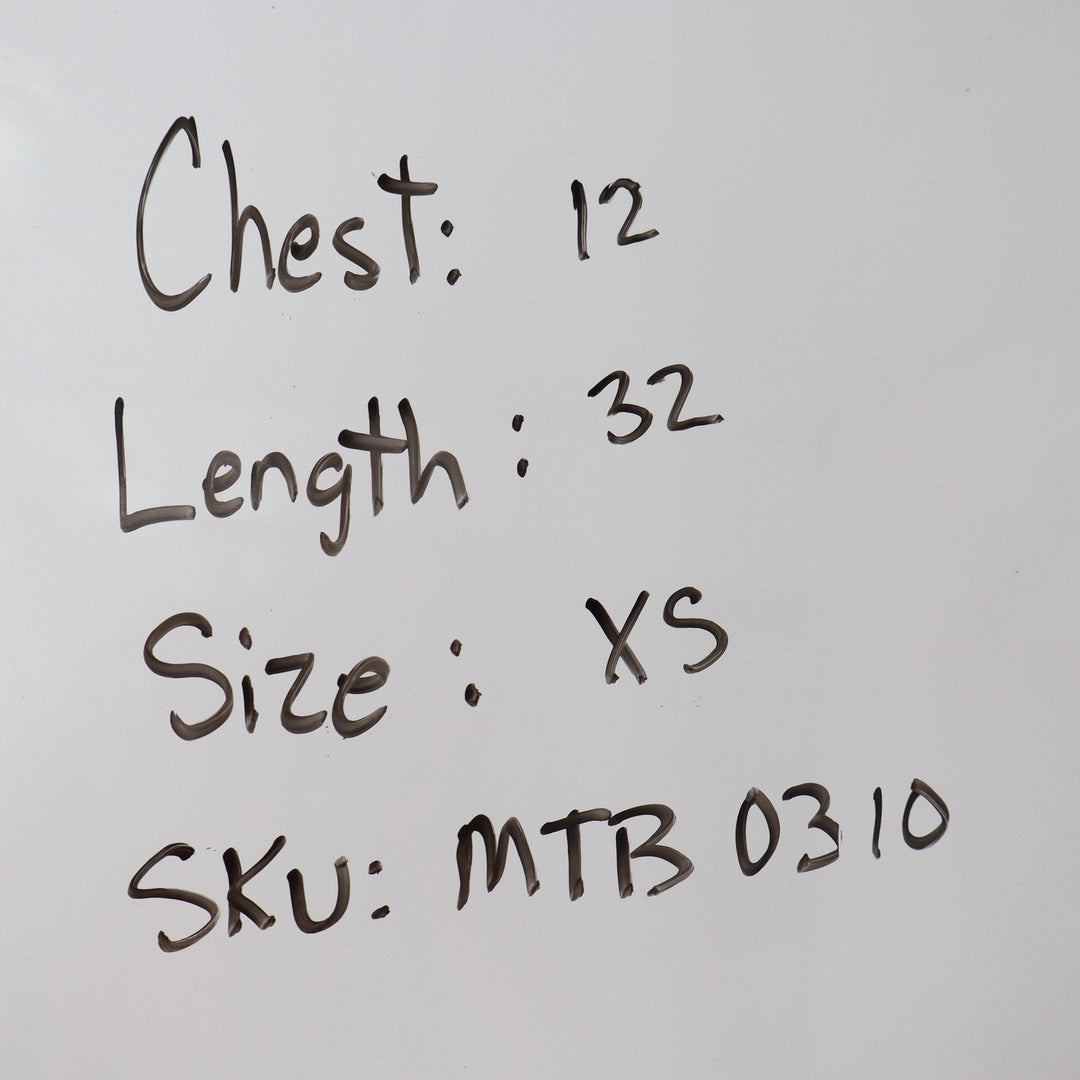 Chest: 12
Length: 32
Size: XS
SKU: MTB 0310